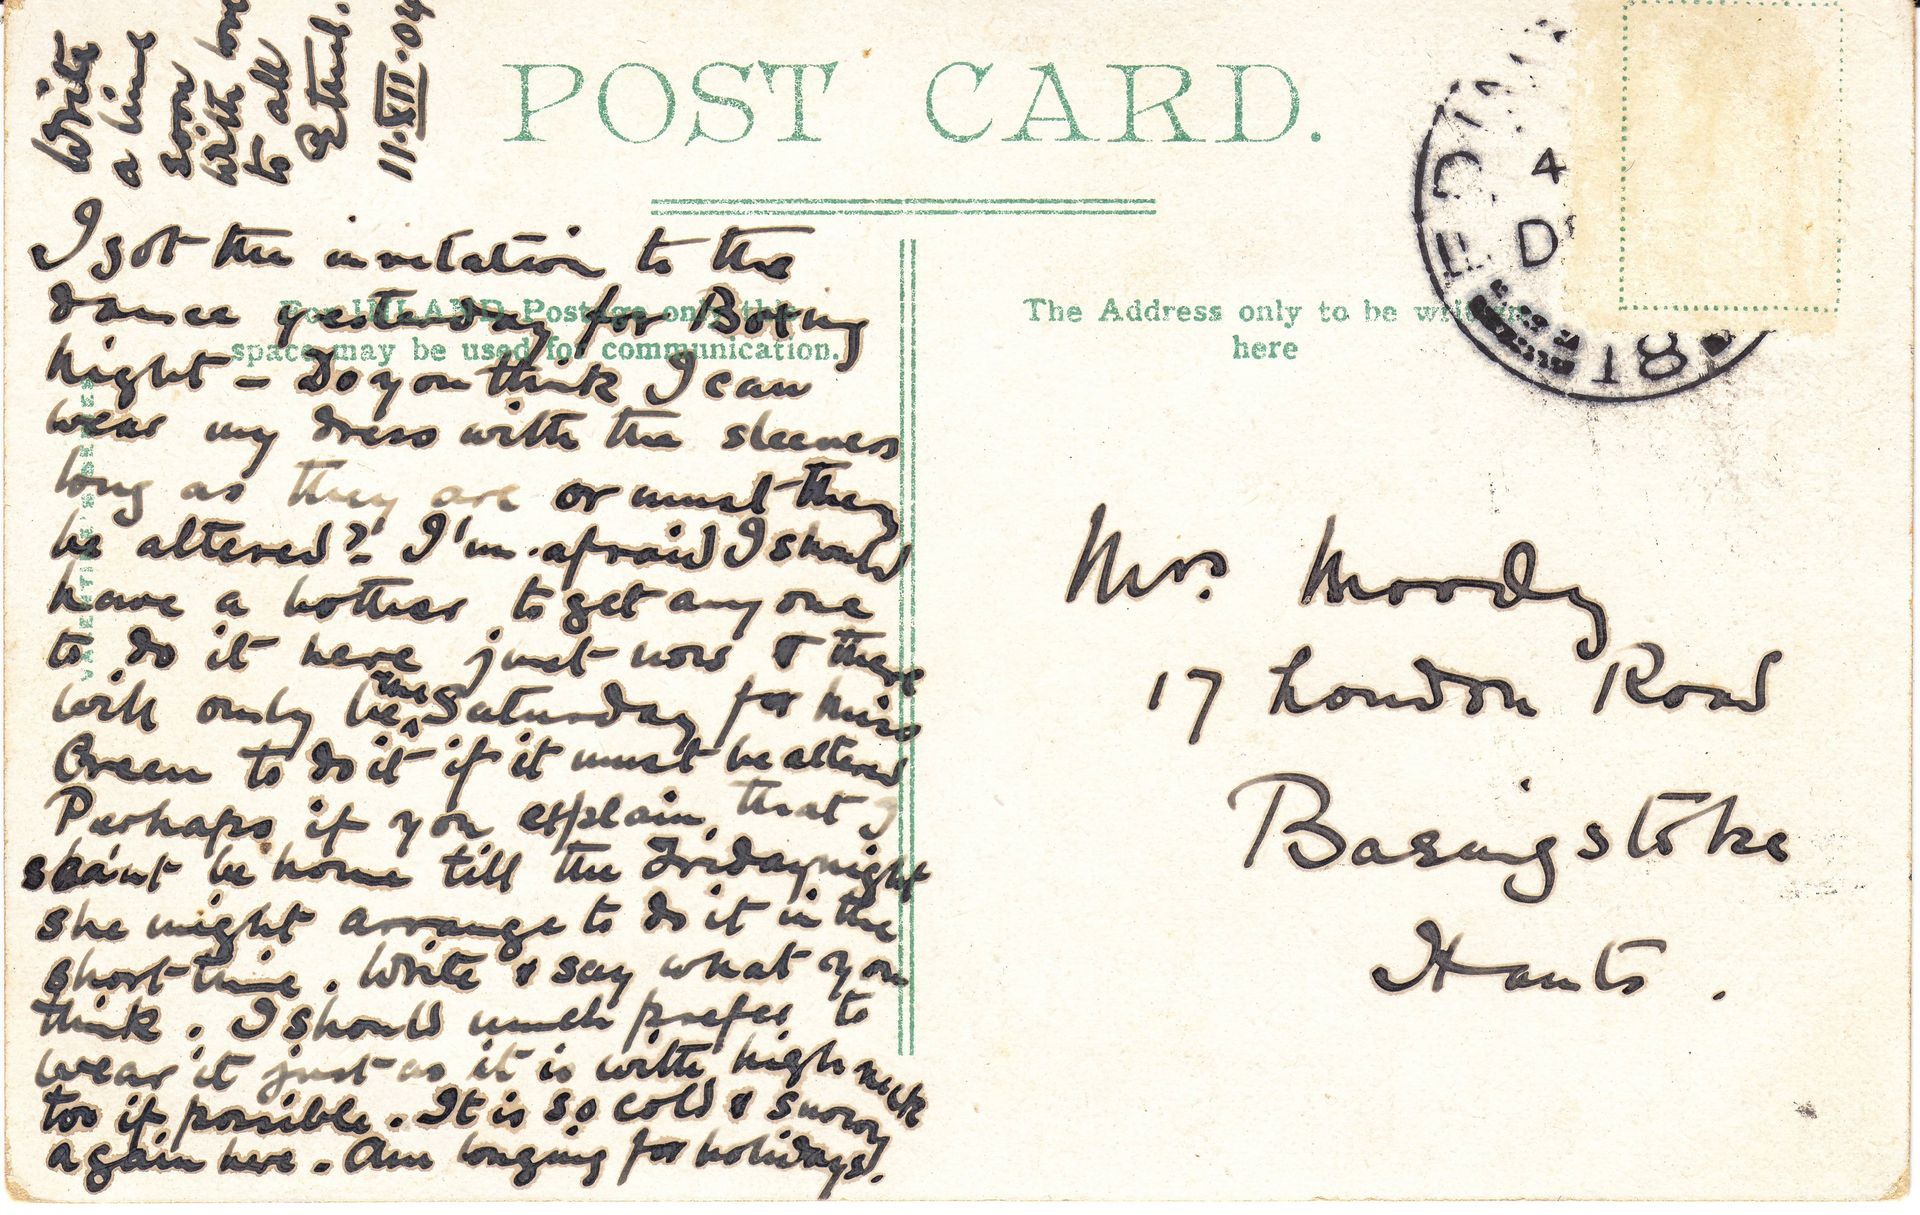 POST CARD.
For INLAND Postage only this
space may be used for communication.
The Address only to be written
here
I got the invitation to the
dance yesterday for Boxing
night – Do you think I can
wear my dress with the sleeves
long as they are or must they
be altered? I'm afraid I should
have a bother to get any one
to do it here just now & there
will only be the Saturday for Miss
Green to do it if it must be altered
Perhaps if you explain that I
shan't be home till the Friday night
she might arrange to do it in the
short time. Write & say what you
think. I should much prefer to
wear it just as it is with high neck
too if possible. It is so cold & snowy
again here. Am longing for holidays.
Write
a line
soon
With love
to all
Ethel.
11.XII.04
Mrs. Moody
17 London Road
Basingstoke
Hants.
EDIN
4
D
18